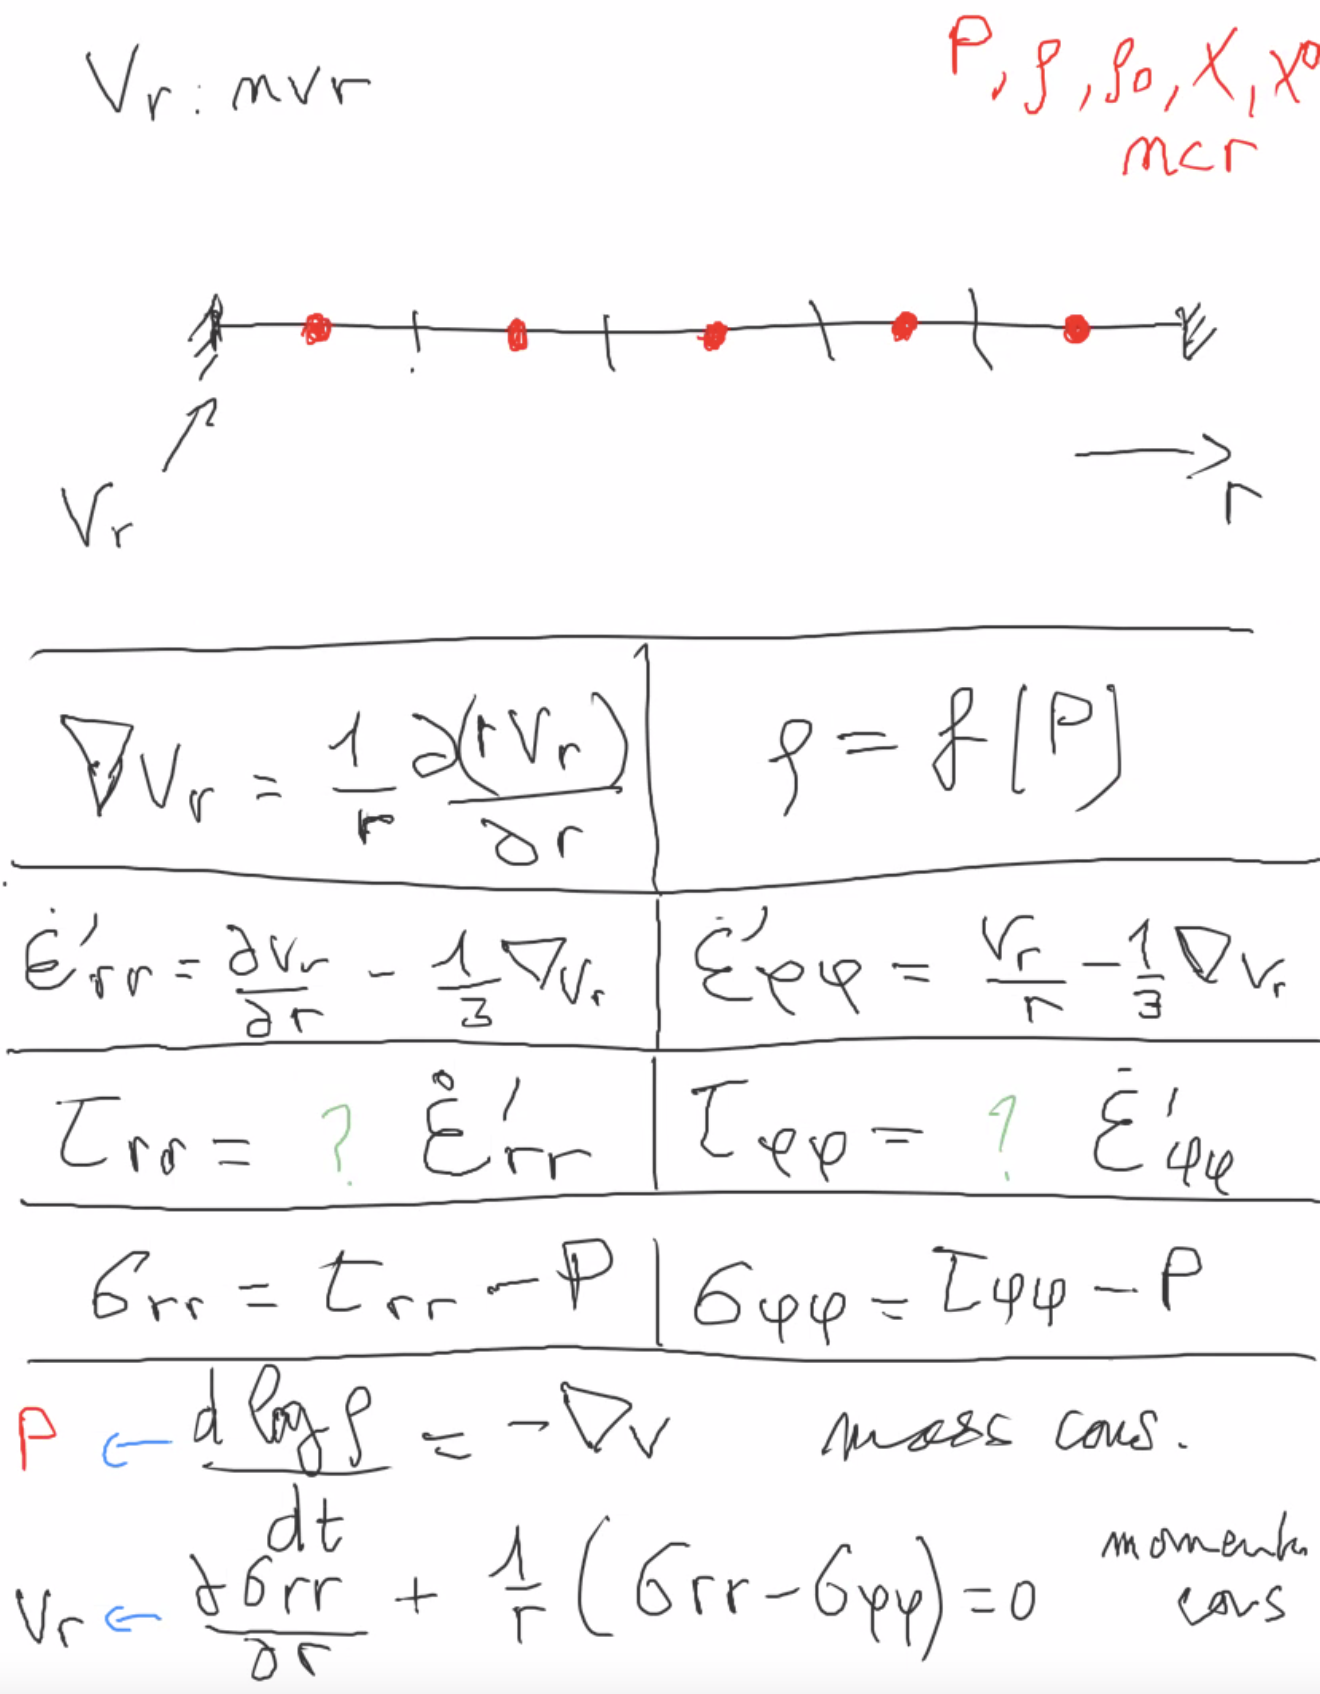 Vr : nvr
P, ρ, ρ0, X, X⁰
ncr
Vr
r
∇Vr = 1/r ∂(rVr)/∂r
ρ = f(P)
ε̇'rr = ∂Vr/∂r - 1/3 ∇Vr
ε̇'φφ = Vr/r - 1/3 ∇Vr
τrr = ? ε̇'rr
τφφ = ? ε̇'φφ
σrr = τrr - P
σφφ = τφφ - P
P ← d log ρ/dt = -∇v mass cons.
Vr ← ∂σrr/∂r + 1/r (σrr - σφφ) = 0
cons